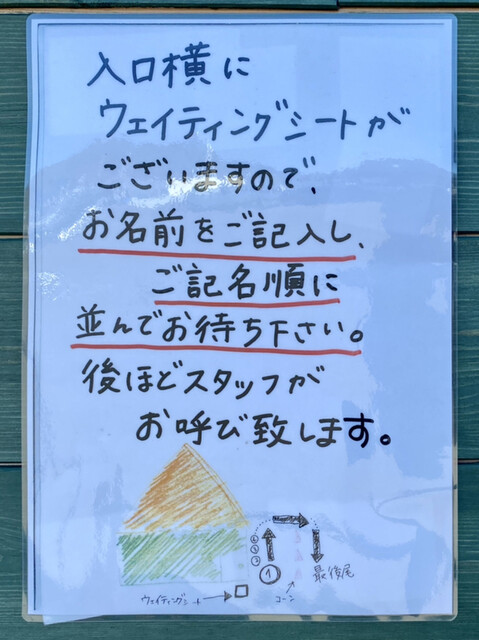 入口横に
ウェイティングシートが
ございますので、
お名前をご記入し、
ご記名順に
並んでお待ち下さい。
後ほどスタッフが
お呼び致します。
①
最後尾
コーン
ウェイティングシート